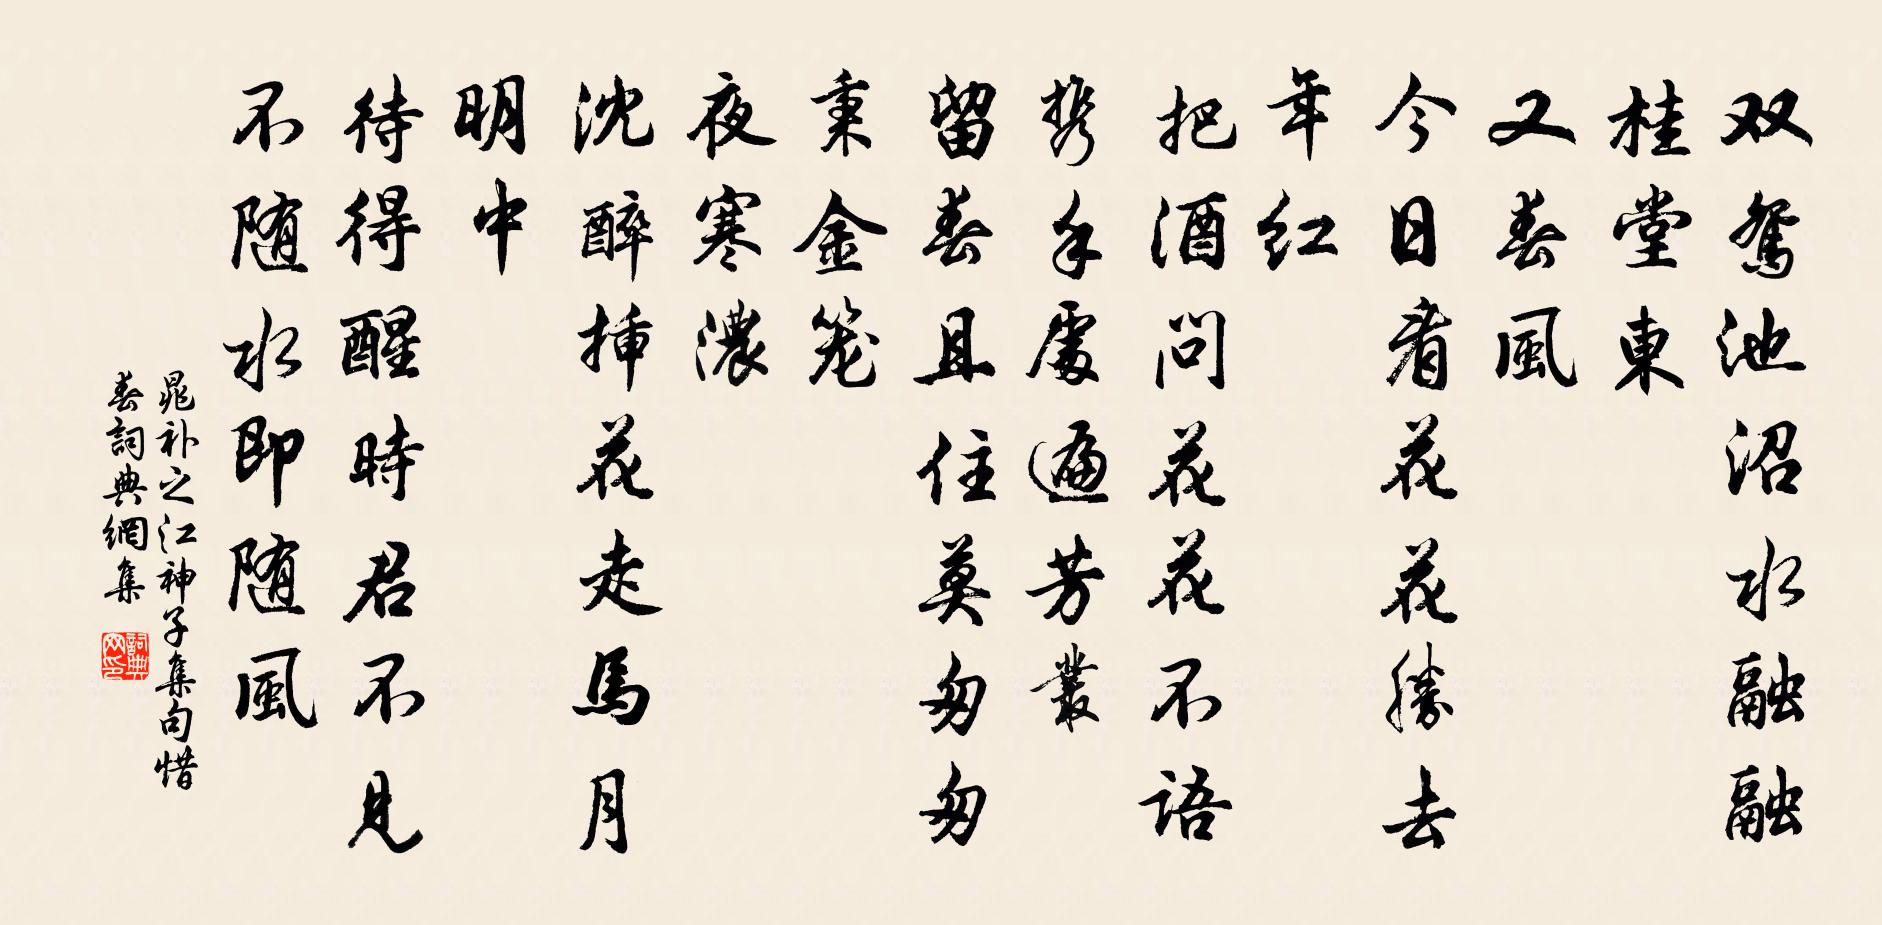 双鸳池沼水融融
桂堂東
又春風
今日看花花勝去
年红
把酒问花花不语
携手處遍芳叢
留春且住莫匆匆
秉金笼
夜寒濃
沈醉插花走馬月
明中
待得醒時君不見
不随水即随風
晁补之江神子集句惜
春詞典網集
詞典网印